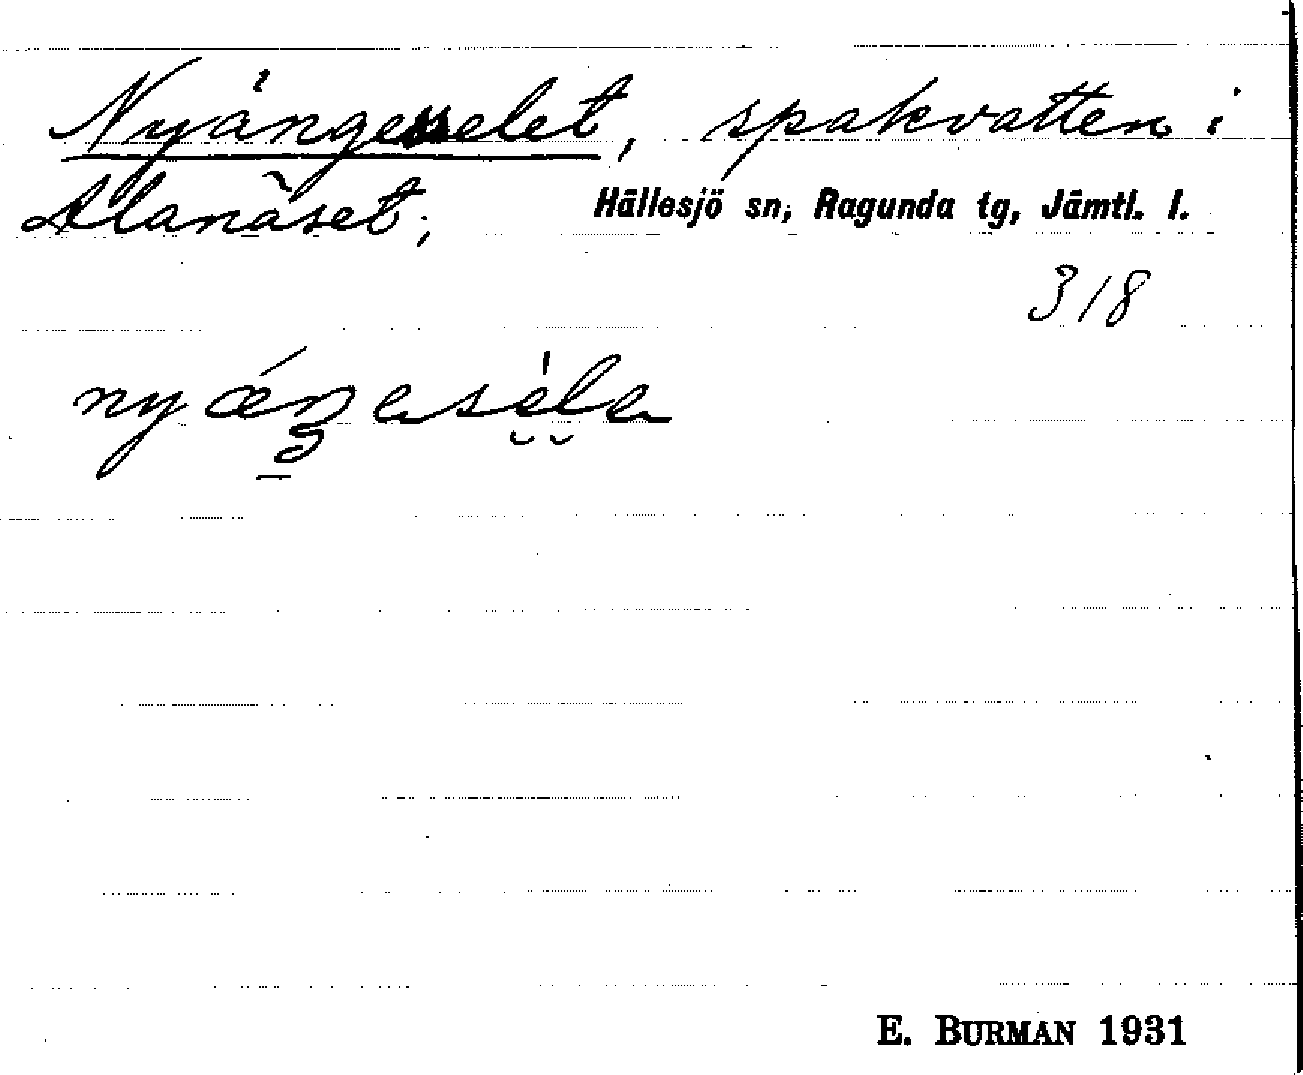 Nyängesselet, spakvatten i
Alanäset, Hällesjö sn, Ragunda tg, Jämtl. l.
318
E. BURMAN 1931